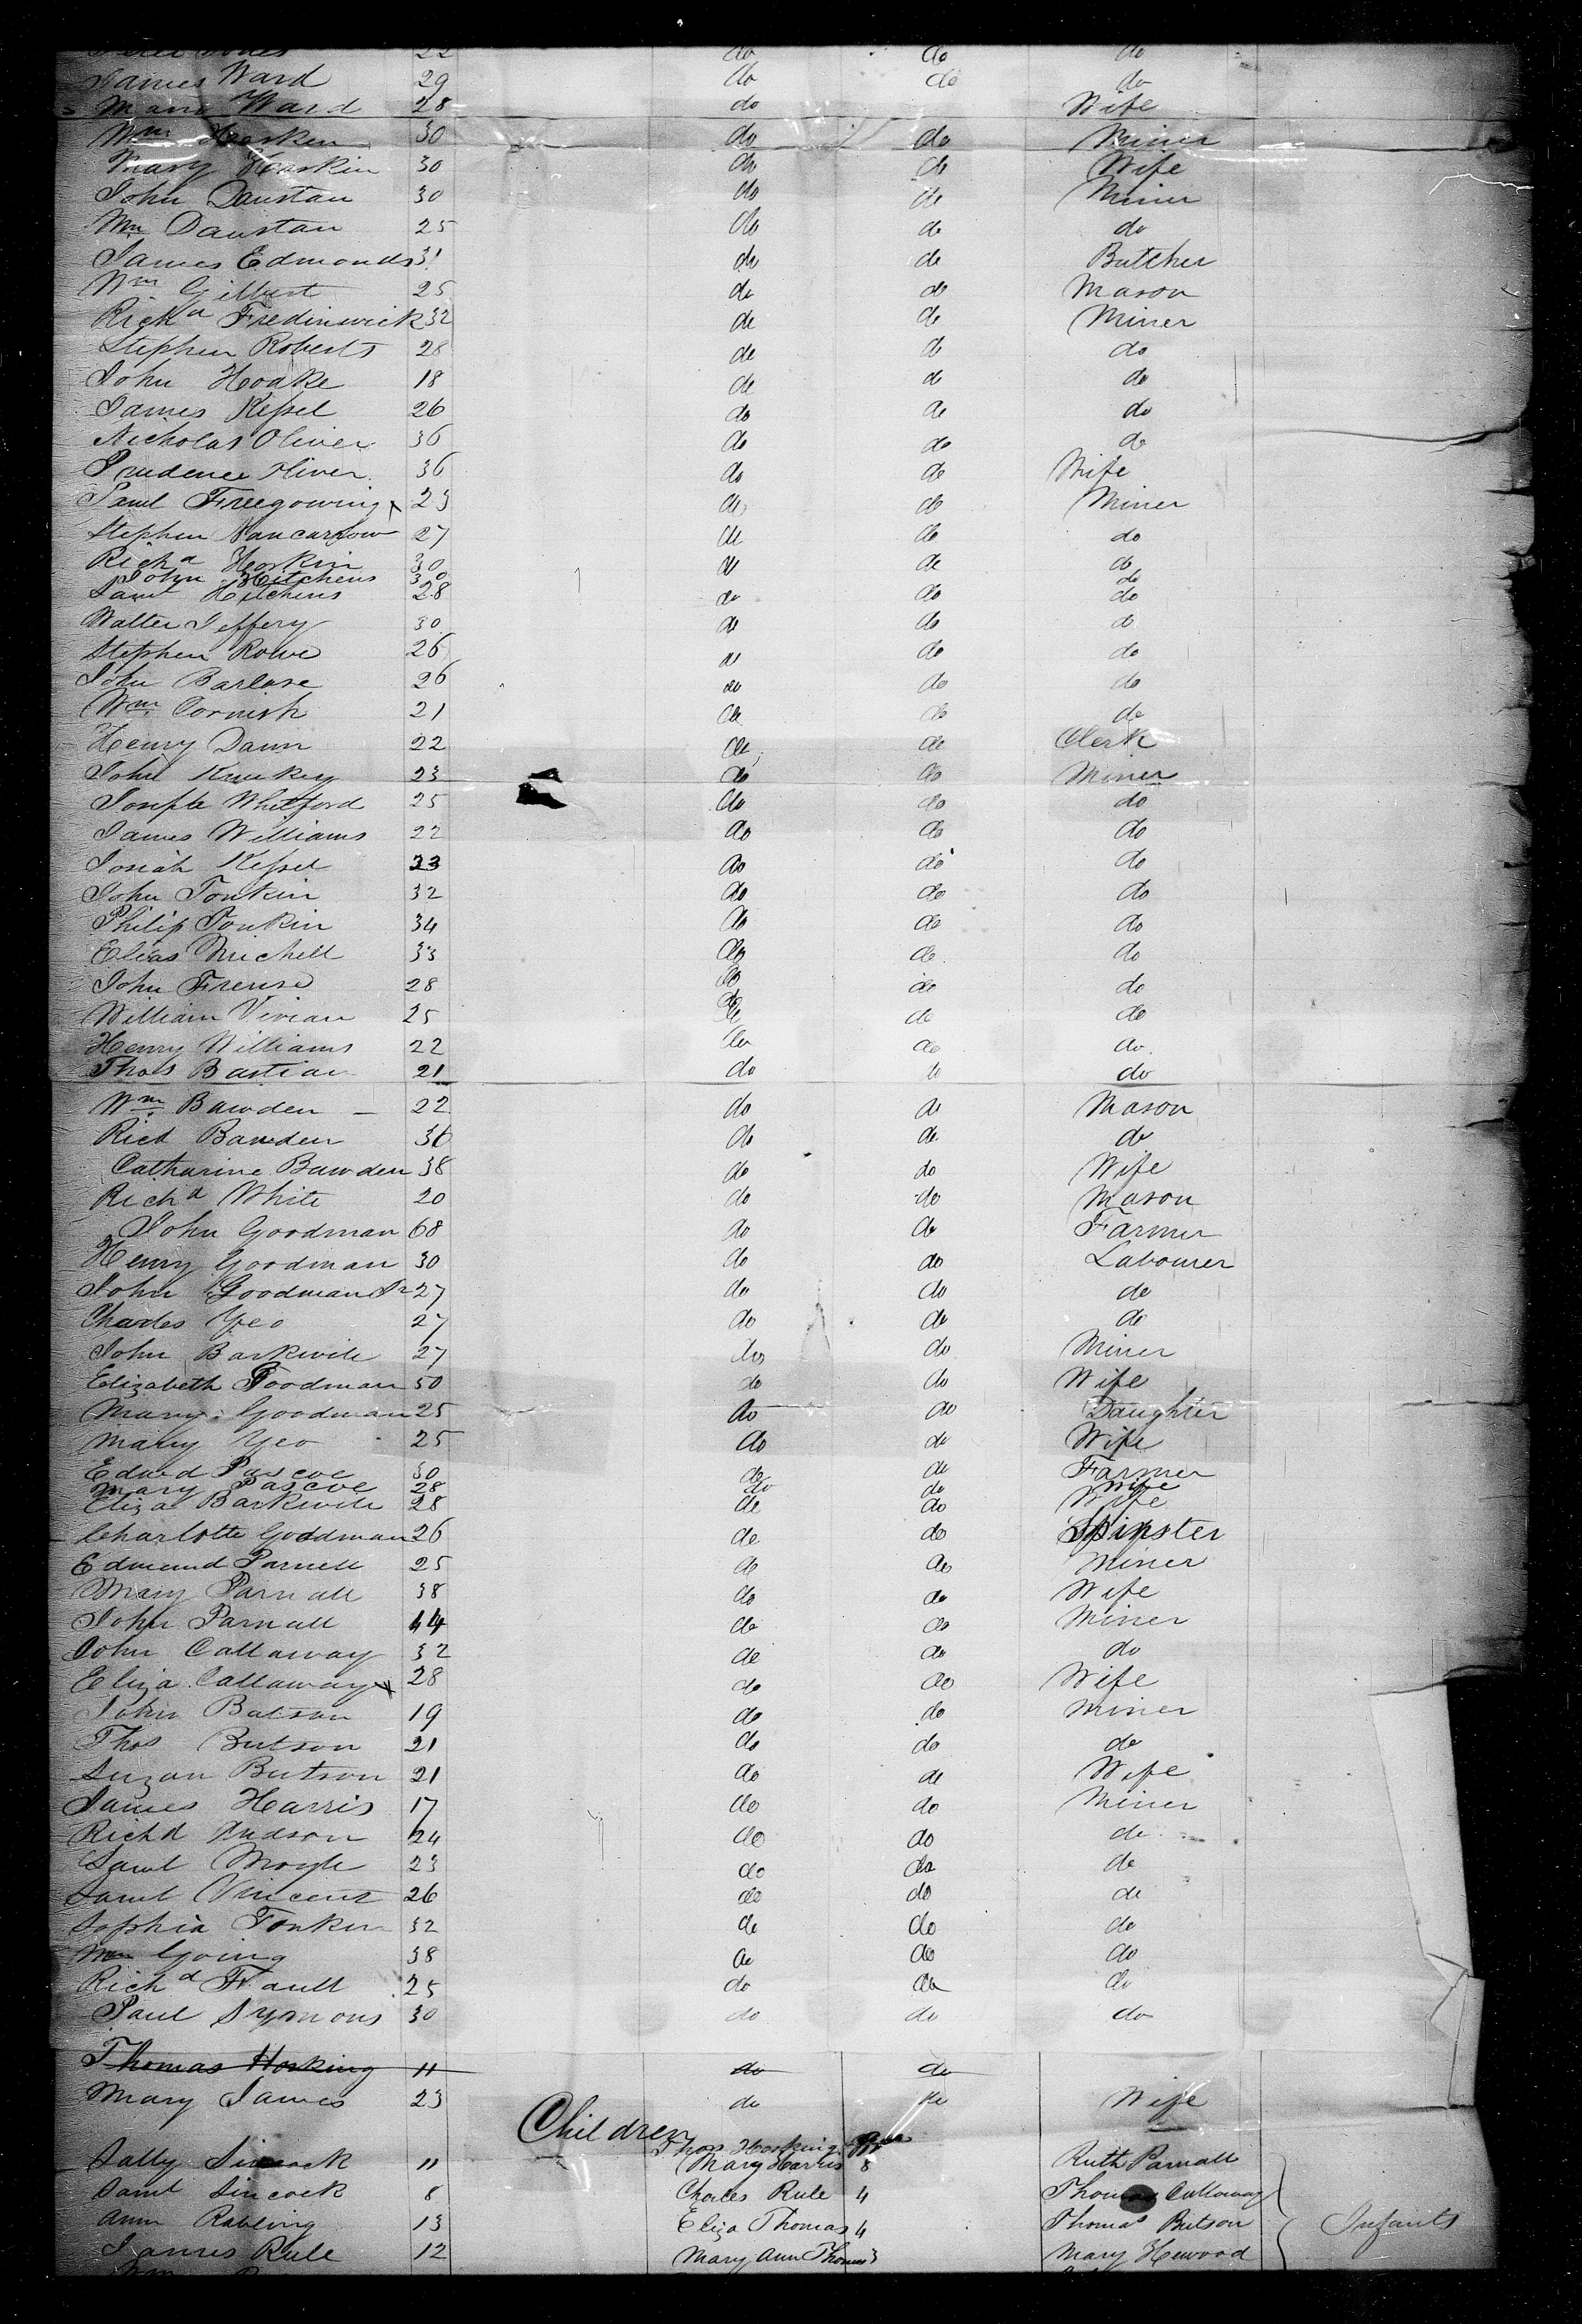 22 do do do
James Ward 29 do do do
Mary Ward 28 do Wife
Wm Hosken 30 do do Miner
Mary Hoskin 30 do do Wife
John Dunstan 30 do do Miner
Wm Dunstan 25 do do do
James Edmonds 31 do do Butcher
Wm Gilbert 25 do do Mason
Richd 32 do do Miner
Stephen Roberts 28 do do do
John Hoake 18 do do do
James Kessel 26 do do do
Nicholas Oliver 36 do do do
Prudence Oliver 36 do do Wife
23 do do Miner
Stephen Nancarrow 27 do do do
Richd Hoskin 30 do do do
John Hitchens 30 do
Saml Hitchens 28 do do do
Walter Jeffery 30 do do do
Stephen Rowe 26 do do do
John Barlase 26 do do do
Wm Cornish 21 do do do
Henry Dawn 22 do do Clerk
John 23 do do Miner
Joseph Whitford 25 do do do
James Williams 22 do do do
Josiah Kessel 33 do do do
John Tonkin 32 do do do
Philip Tonkin 34 do do do
Elias Michell 33 do do do
John 28 do do do
William Vivian 25 do do do
Henry Williams 22 do do do
Thos Bastian 21 do do do
Wm Bawden 22 do do Mason
Richd Bawden 36 do do do
Catharine Bawden 38 do do Wife
Richd White 20 do do Mason
John Goodman 68 do do Farmer
Henry Goodman 30 do do Labourer
John Goodman Jr 27 do do do
Charles Yeo 27 do do do
John Barkwill 27 do do Miner
Elizabeth Goodman 50 do do Wife
Mary Goodman 25 do do Daughter
Mary Yeo 25 do do Wife
Edward Pascoe 30 do do Farmer
Mary Pascoe 28 do do Wife
Eliza Barkwill 28 do do Wife
Charlotte Goodman 26 do do Spinster
Edmund Parnell 25 do do Miner
Mary Parnall 38 do do Wife
John Parnall 44 do do Miner
John Callaway 32 do do do
Eliza Callaway 28 do do Wife
John Butson 19 do do Miner
Thos Butson 21 do do do
Suzan Butson 21 do do Wife
James Harris 17 do do Miner
Richd Hudson 24 do do do
Saml Moyle 23 do do do
Saml Vincent 26 do do do
Sophia Tonkin 32 do do do
Wm Going 38 do do do
Richd Fault 25 do do do
Paul Symons 30 do do do
Thomas Hosking 11 do do
Mary James 23 do do Wife
Children
Thos Hosking
Sally Sincock 11 Mary Harris 8 Ruth Parnall
Saml Sincock 8 Charles Rule 4 Thomas Callaway
Ann Rabling 13 Eliza Thomas 4 Thomas Butson Infants
James Rule 12 Mary Ann Thomas 3 Mary Hewood